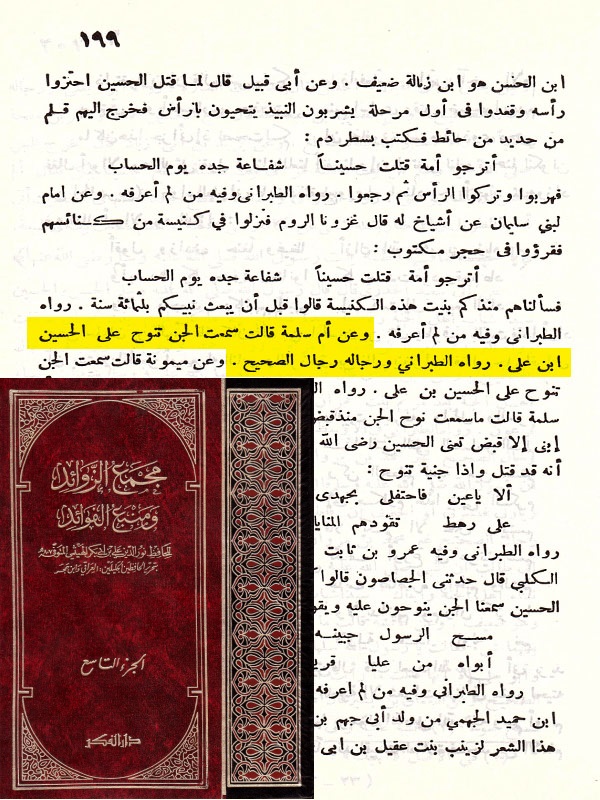 ١٩٩
ابن الحسن هو ابن زبالة ضعيف . وعن أبى قبيل قال لما قتل الحسين احتزوا
رأسه وقعدوا فى أول مرحلة يشربون النبيذ يتحيون بالرأس فخرج اليهم قلم
من حديد من حائط فكتب بسطر دم :
أترجو أمة قتلت حسيناً شفاعة جده يوم الحساب
فهربوا وتركوا الرأس ثم رجعوا . رواه الطبرانى وفيه من لم أعرفه . وعن امام
لبني سليمان عن أشياخ له قال غزونا الروم فنزلوا في كنيسة من كنائسهم
فقرؤوا فى حجر مكتوب :
أترجو أمة قتلت حسيناً شفاعة جده يوم الحساب
فسألناهم منذ كم بنيت هذه الكنيسة قالوا قبل أن يبعث نبيكم بثلثمائة سنة . رواه
الطبرانى وفيه من لم أعرفه . وعن أم سلمة قالت سمعت الجن تنوح على الحسين
ابن على . رواه الطبراني ورجاله رجال الصحيح . وعن ميمونة قالت سمعت الجن
تنوح على الحسين بن على . رواه
سلمة قالت ماسمعت نوح الجن منذ قبض
إبنى إلا قبض تعنى الحسين رضى الله
أنه قد قتل واذا جنية تنوح :
ألا ياعين فاحتفلى بجهدى
على رهط تقودهم المنايا
رواه الطبرانى وفيه عمرو بن ثابت
الكلبي قال حدثنى الجصاصون قالوا
الحسين سمعنا الجن ينوحون عليه ويقو
مسح الرسول جبينه
أبواه من عليا قري
رواه الطبرانى وفيه من لم اعرفه
ابن حميد الجهمي من ولد أبى جهم بن
هذا الشعر لزينب بنت عقيل بن ابى
مجمع الزوائد
ومنبع الفوائد
للحافظ نور الدين علي بن أبي بكر الهيثمي المتوفى ٨٠٧
بتحرير الحافظين الجليلين : العراقي وابن حجر
الجزء التاسع
دار الفكر